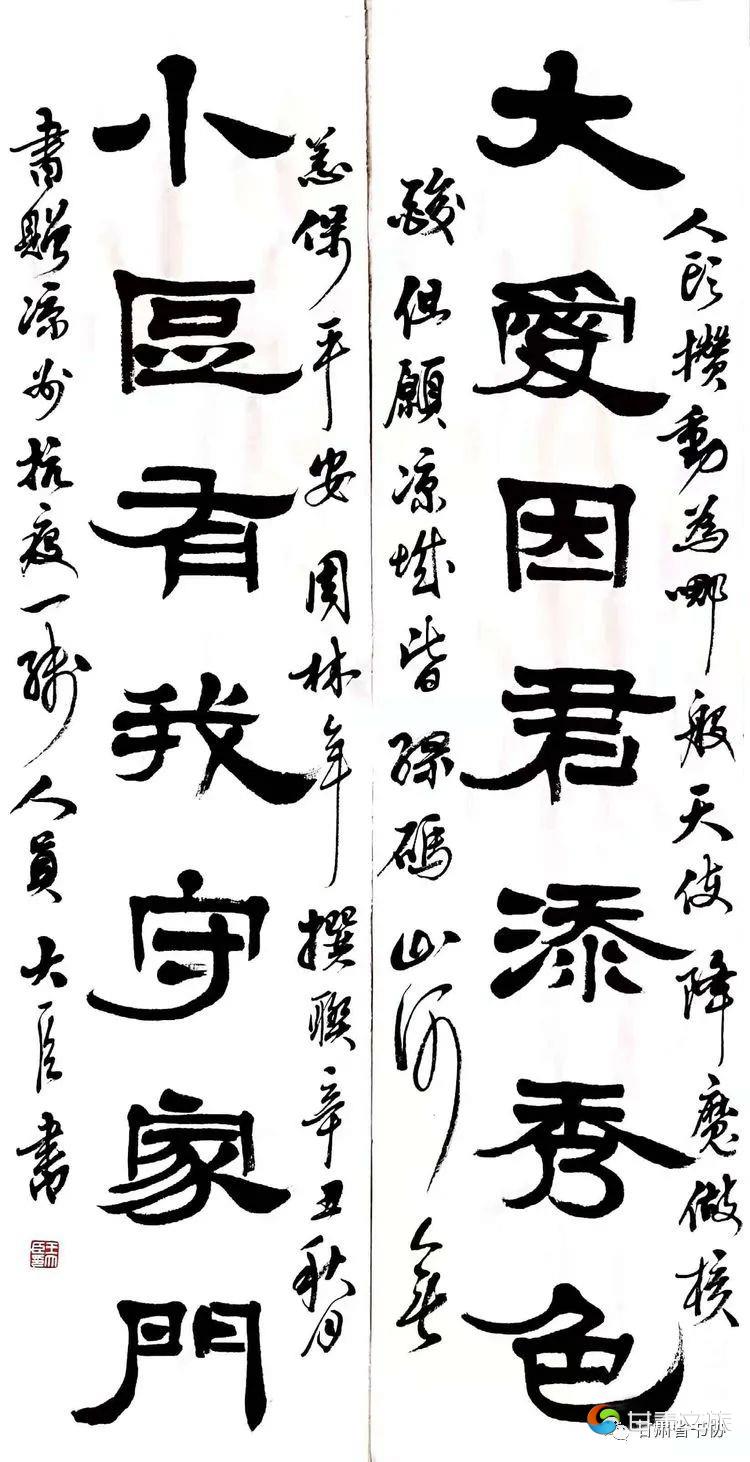 人頭攒動為哪般天使降魔做核
大愛因君添秀色
酸但願凉城皆绿碼山河無
恙保平安周林年撰聯辛丑秋月
小區有我守家門
書贈凉州抗疫一线人員大臣書
甘肃省书协